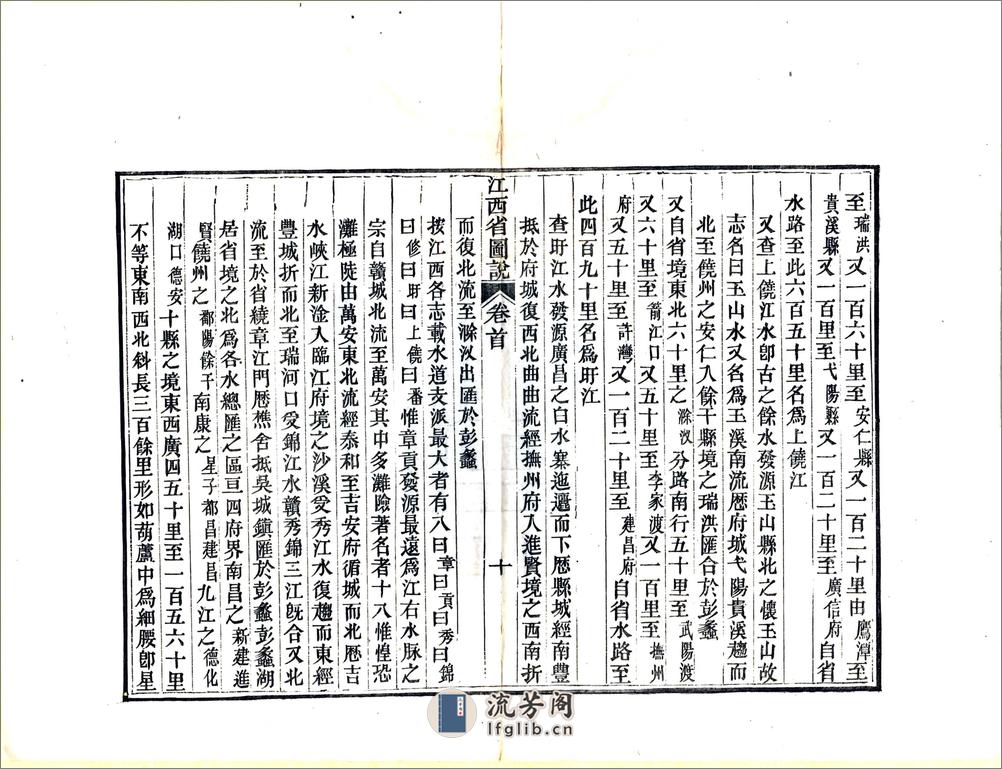 至瑞洪又一百六十里至安仁縣又一百二十里由鷹潭至
貴溪縣又一百里至弋陽縣又一百二十里至廣信府自省
水路至此六百五十里名爲上饒江
又查上饒江水卽古之餘水發源玉山縣北之懷玉山故
志名曰玉山水又名爲玉溪南流歷府城弋陽貴溪趨而
北至饒州之安仁入餘干縣境之瑞洪匯合於彭蠡
又自省境東北六十里之滁汊分路南行五十里至武陽渡
又六十里至箭江口又五十里至李家渡又一百里至撫州
府又五十里至許灣又一百二十里至建昌府自省水路至
此四百九十里名爲盱江
查盱江水發源廣昌之白水寨迤邐而下歷縣城經南豐
抵於府城復西北曲曲流經撫州府入進賢境之西南折
江西省圖說 卷首 十
而復北流至滁汊出匯於彭蠡
按江西各志載水道支派最大者有八曰章曰貢曰秀曰錦
曰修曰盱曰上饒曰番惟章貢發源最遠爲江右水脉之
宗自贛城北流至萬安其中多灘險著名者十八惟惶恐
灘極陡由萬安東北流經泰和至吉安府循城而北歷吉
水峽江新淦入臨江府境之沙溪受秀江水復趨而東經
豐城折而北至瑞河口受錦江水贛秀錦三江旣合又北
流至於省繞章江門歷樵舍抵吳城鎭匯於彭蠡彭蠡湖
居省境之北爲各水總匯之區亘四府界南昌之新建進
賢饒州之鄱陽餘干南康之星子都昌建昌九江之德化
湖口德安十縣之境東西廣四五十里至一百五六十里
不等東南西北斜長三百餘里形如葫蘆中爲細腰卽星
流芳阁
lfglib.cn